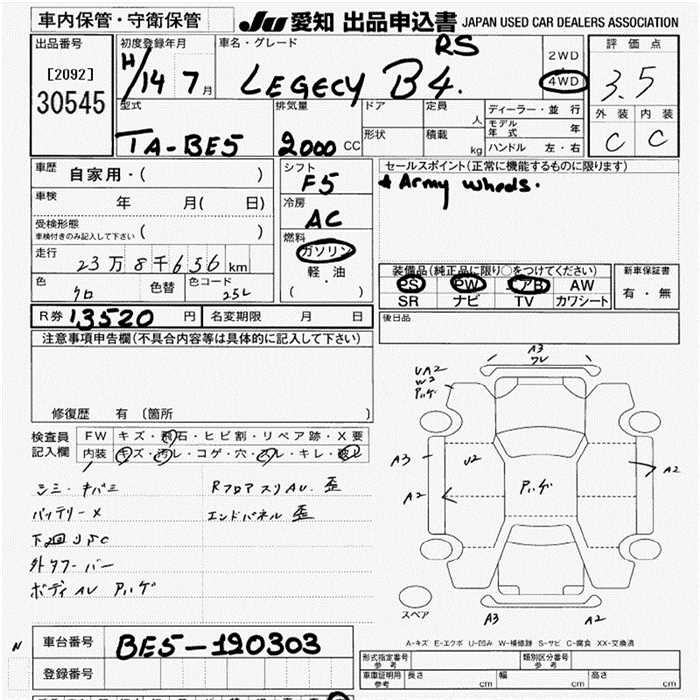 車内保管・守衛保管
JU 愛知 出品申込書 JAPAN USED CAR DEALERS ASSOCIATION
出品番号
[2092]
30545
初度登録年月
H/14 7月
車名・グレード
RS
LEGECY B4.
2WD
4WD
評価点
3.5
外装 内装
C C
型式
TA-BE5
排気量
2000 CC
ドア
形状
定員 人
積載 kg
ディーラー・並行
モデル年式 年
ハンドル 左・右
車歴
自家用・( )
車検
年 月( 日)
受検形態
車検付きのみ記入して下さい ( )
走行
23万8千656km
色
クロ
色替
色コード
25L
シフト
F5
冷房
AC
燃料
ガソリン
軽・油
( )
セールスポイント(正常に機能するものに限ります)
Army wheels.
装備品(純正品に限り○をつけてください)
PS PW エアB AW
SR ナビ TV カワシート
新車保証書
有・無
R券 13520 円
名変期限 月 日
後日品
注意事項申告欄(不具合内容等は具体的に記入して下さい)
修復歴 有(箇所 )
検査員記入欄
FW キズ・飛石・ヒビ割・リペア跡・X要
内装 キズ・汚レ・コゲ・穴・スレ・キレ・破レ
シミ・キバミ
バッテリー×
下回りサC
外リフーバー
ボディAU アハゲ
RフロアスリAU. 歪
エンドパネル 歪
A3
ワレ
UA2
W2
アハゲ
A3
U2
A2
アハゲ
A2
スペア
A3
A2
A-キズ E-エクボ U-凹み W-補修跡 S-サビ C-腐食 XX-交換済
N
車台番号
BE5-120303
登録番号
形式指定番号
参考
類別区分番号
参考
車庫証明用
参考
長さ cm
幅 cm
高さ cm